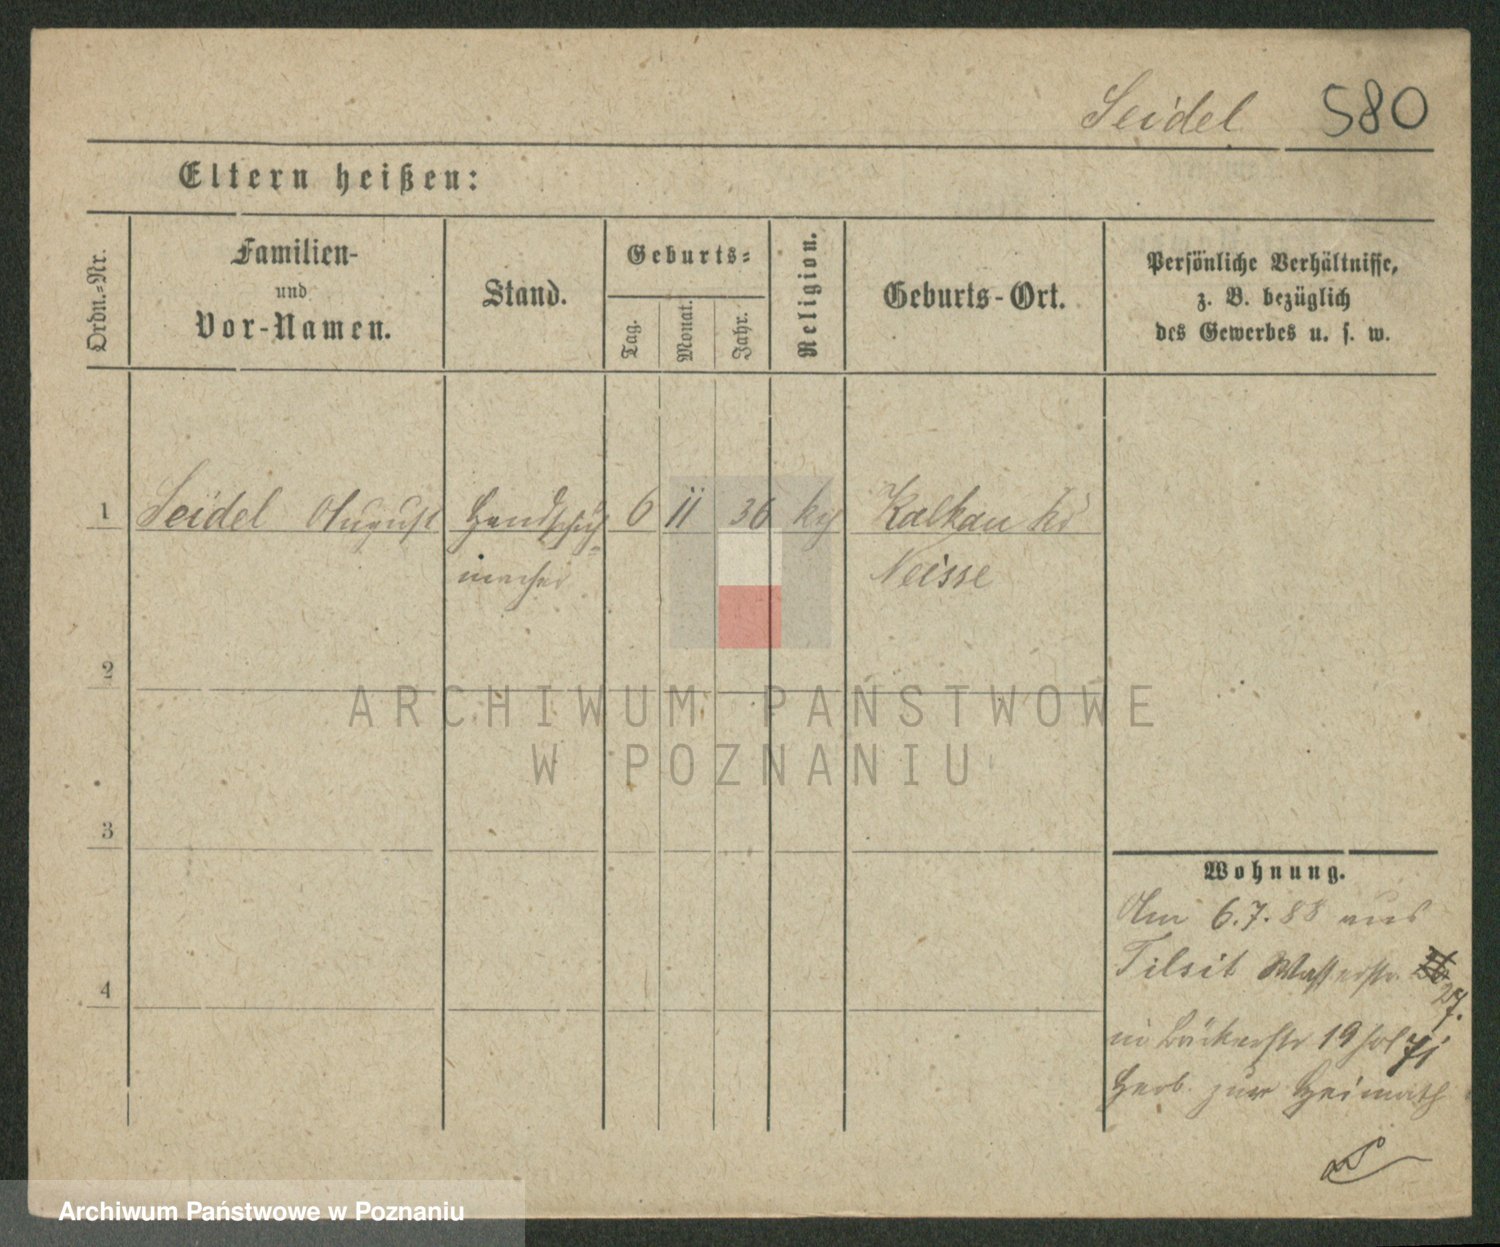 Seidel 580
Eltern heißen:
Ordn.-Nr.
Familien-
und
Vor-Namen.
Stand.
Geburts-
Tag.
Monat.
Jahr.
Religion.
Geburts-Ort.
Persönliche Verhältnisse,
z. B. bezüglich
des Gewerbes u. s. w.
1 Seidel August Handschuh 6 11 36 Kalkau
macher Neisse
2
ARCHIWUM PAŃSTWOWE
W POZNANIU
3
Wohnung.
Am 6.7.88 aus
Tilsit Wasserstr.
27.
Bäckerstr 19
4
Herb. zur Heimath
Archiwum Państwowe w Poznaniu